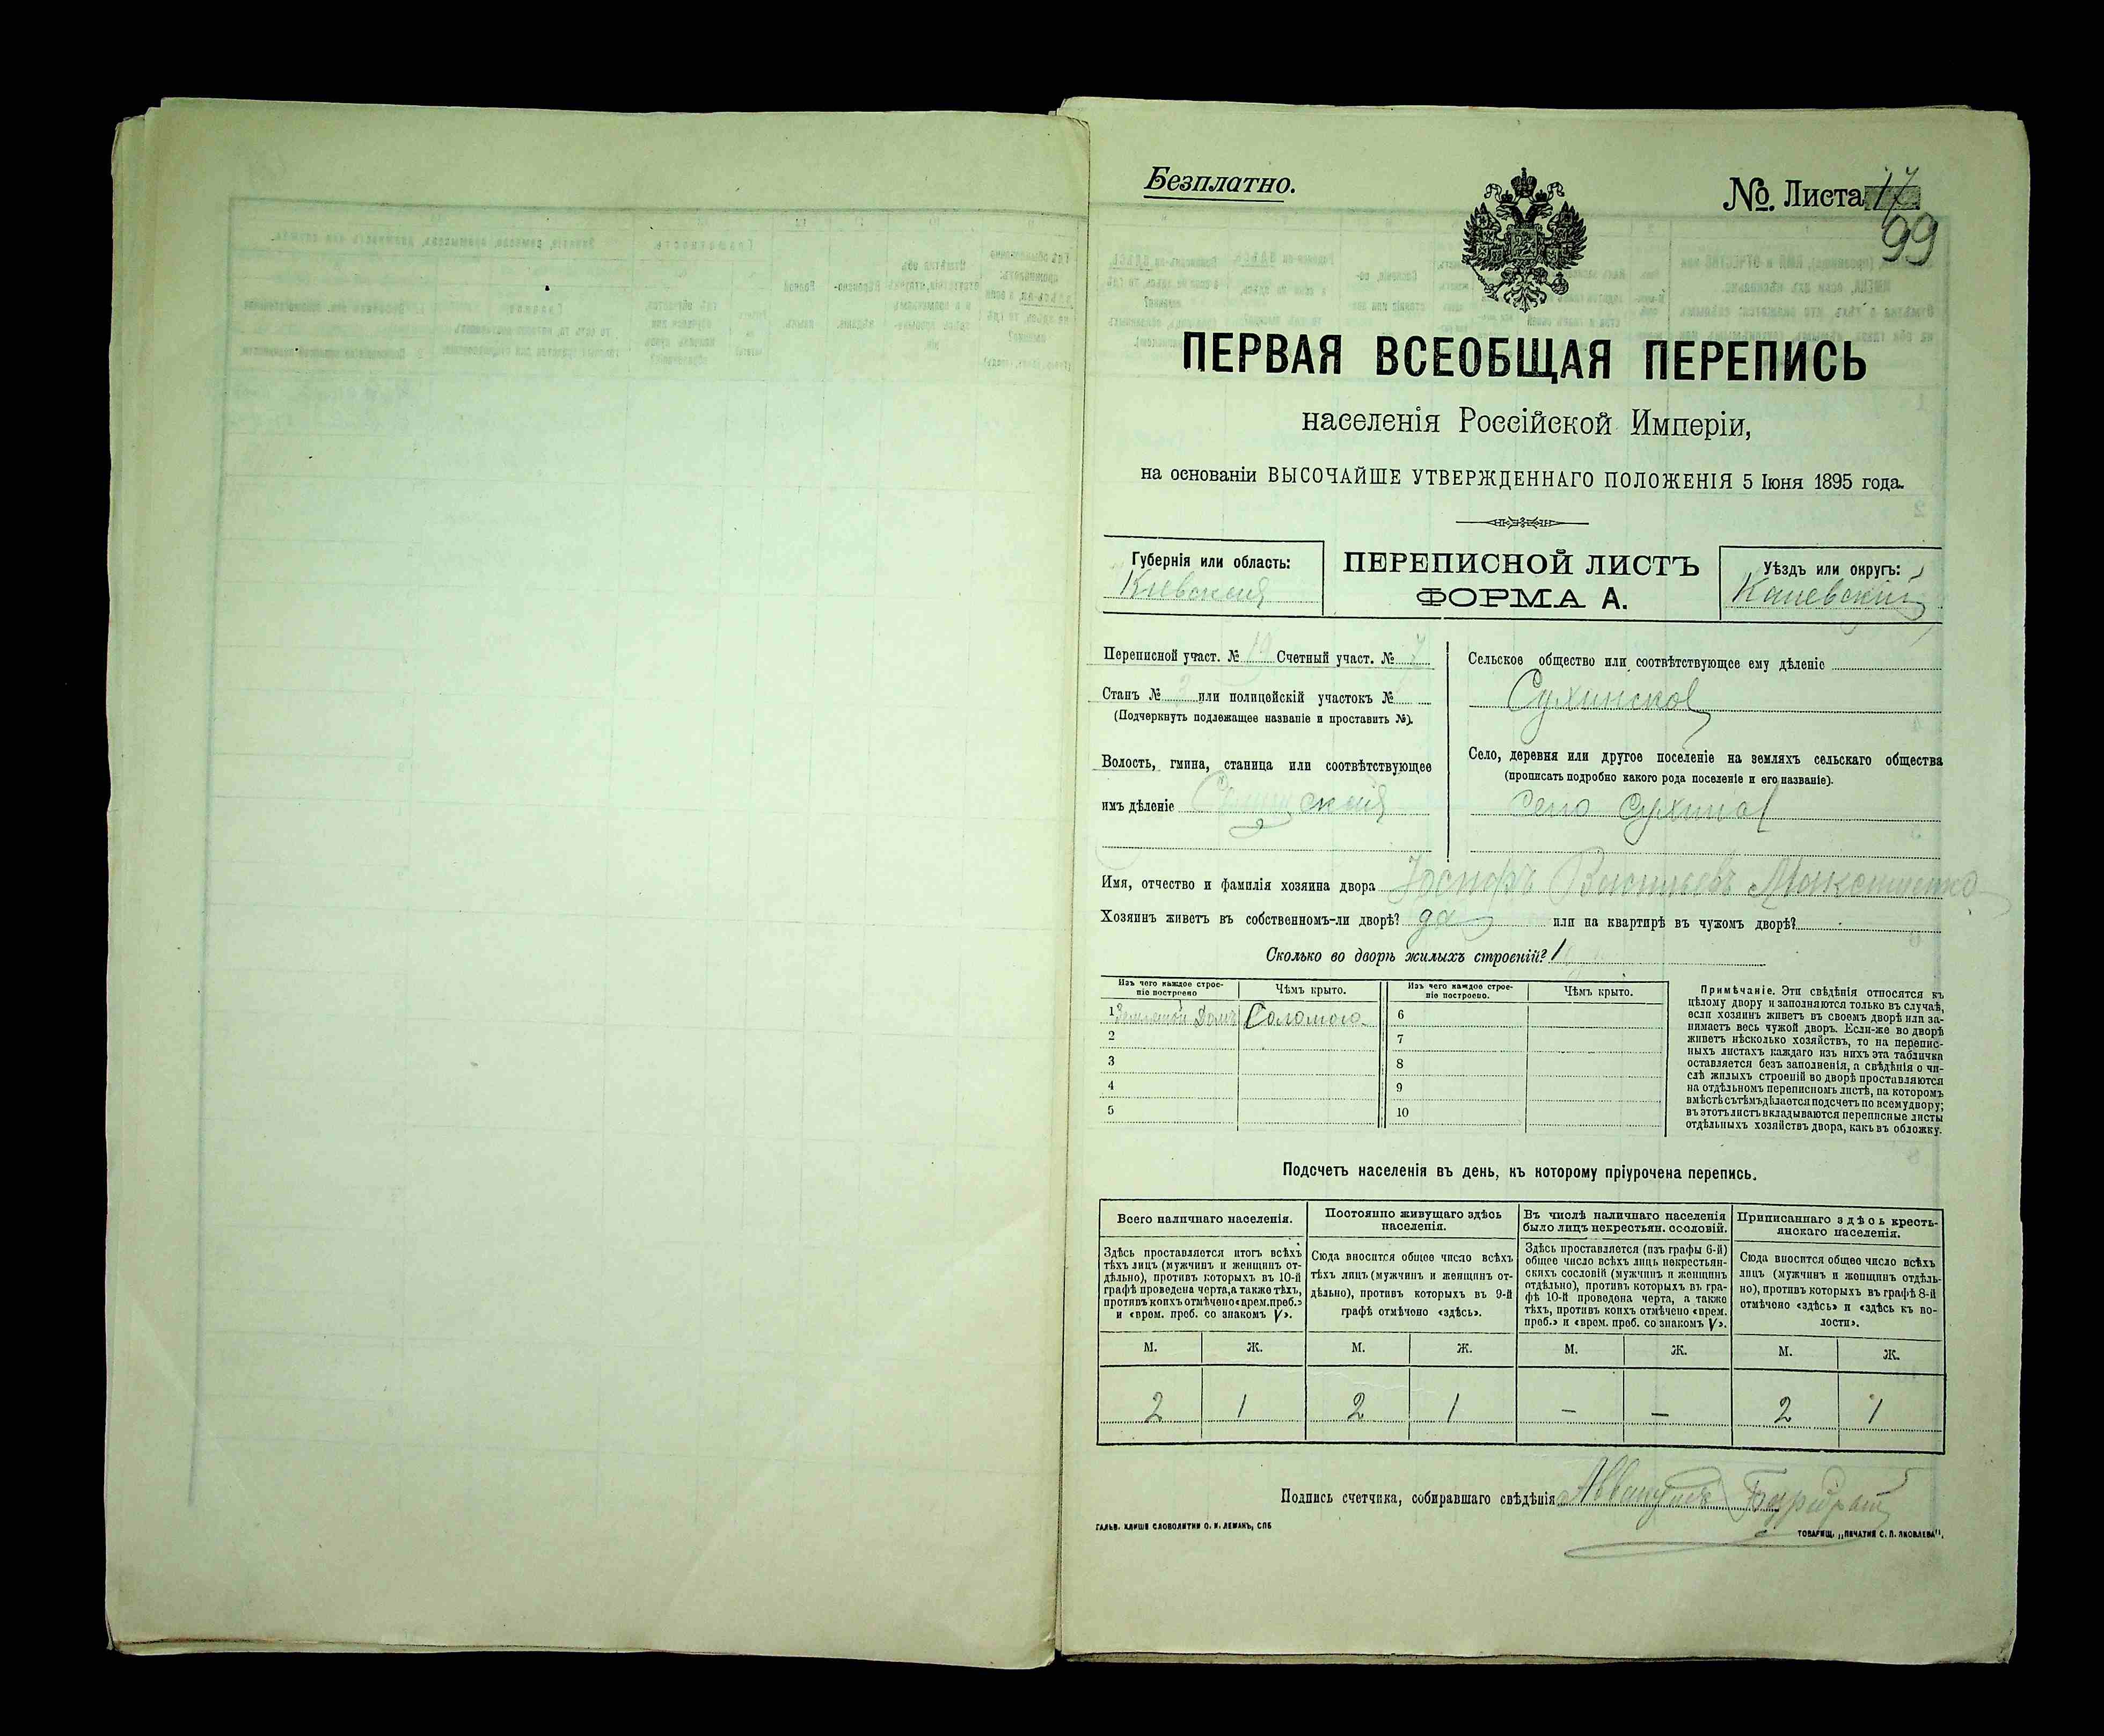 Безплатно.
№ Листа 17
99
ПЕРВАЯ ВСЕОБЩАЯ ПЕРЕПИСЬ
населенія Россійской Имперіи,
на основаніи ВЫСОЧАЙШЕ УТВЕРЖДЕННАГО ПОЛОЖЕНІЯ 5 Іюня 1895 года.
Губернія или область:
Кіевская
ПЕРЕПИСНОЙ ЛИСТЪ
ФОРМА А.
Уѣздъ или округъ:
Каневскій
Переписной участ. № 19 Счетный участ. № 7
Станъ № 3 или полицейскій участокъ №
(Подчеркнуть подлежащее названіе и проставить №).
Волость, гмина, станица или соотвѣтствующее
имъ дѣленіе
Сельское общество или соотвѣтствующее ему дѣленіе
Сухинское
Село, деревня или другое поселеніе на земляхъ сельскаго общества
(прописать подробно какого рода поселеніе и его названіе).
село Сухины
Имя, отчество и фамилія хозяина двора Іосифъ Васильевъ
Хозяинъ живетъ въ собственномъ-ли дворѣ? да или на квартирѣ въ чужомъ дворѣ?
Сколько во дворѣ жилыхъ строеній? 1
Изъ чего каждое строе-
ніе построено
Чѣмъ крыто.
Изъ чего каждое строе-
ніе построено.
Чѣмъ крыто.
1 Земляной Домъ Соломою 6
2 7
3 8
4 9
5 10
Примѣчаніе. Эти свѣдѣнія относятся къ
цѣлому двору и заполняются только въ случаѣ,
если хозяинъ живетъ въ своемъ дворѣ или за-
нимаетъ весь чужой дворъ. Если-же во дворѣ
живетъ нѣсколько хозяйствъ, то на перепис-
ныхъ листахъ каждаго изъ нихъ эта табличка
оставляется безъ заполненія, а свѣдѣнія о чи-
слѣ жилыхъ строеній во дворѣ проставляются
на отдѣльномъ переписномъ листѣ, на которомъ
вмѣстѣ съ тѣмъ дѣлается подсчетъ по всему двору;
въ этотъ листъ вкладываются переписные листы
отдѣльныхъ хозяйствъ двора, какъ въ обложку.
Подсчетъ населенія въ день, къ которому пріурочена перепись.
Всего наличнаго населенія.
Здѣсь проставляется итогъ всѣхъ
тѣхъ лицъ (мужчинъ и женщинъ от-
дѣльно), противъ которыхъ въ 10-й
графѣ проведена черта, а также тѣхъ,
противъ коихъ отмѣчено «врем. преб.»
и «врем. преб. со знакомъ V».
Постоянно живущаго здѣсь
населенія.
Сюда вносится общее число всѣхъ
тѣхъ лицъ (мужчинъ и женщинъ от-
дѣльно), противъ которыхъ въ 9-й
графѣ отмѣчено «здѣсь».
Въ числѣ наличнаго населенія
было лицъ некрестьян. сословій.
Здѣсь проставляется (изъ графы 6-й)
общее число всѣхъ лицъ некрестьян-
скихъ сословій (мужчинъ и женщинъ
отдѣльно), противъ которыхъ въ гра-
фѣ 10-й проведена черта, а также
тѣхъ, противъ коихъ отмѣчено «врем.
преб.» и «врем. преб. со знакомъ V».
Приписаннаго здѣсь кресть-
янскаго населенія.
Сюда вносится общее число всѣхъ
лицъ (мужчинъ и женщинъ отдѣль-
но), противъ которыхъ въ графѣ 8-й
отмѣчено «здѣсь» и «здѣсь къ во-
лости».
М. Ж. М. Ж. М. Ж. М. Ж.
2 1 2 1 — — 2 1
Подпись счетчика, собиравшаго свѣдѣнія
ГАЛЬВ. КЛИШЕ СЛОВОЛИТНИ О. И. ЛЕМАНЪ, СПБ
ТОВАРИЩ. „ПЕЧАТНЯ С. П. ЯКОВЛЕВА".